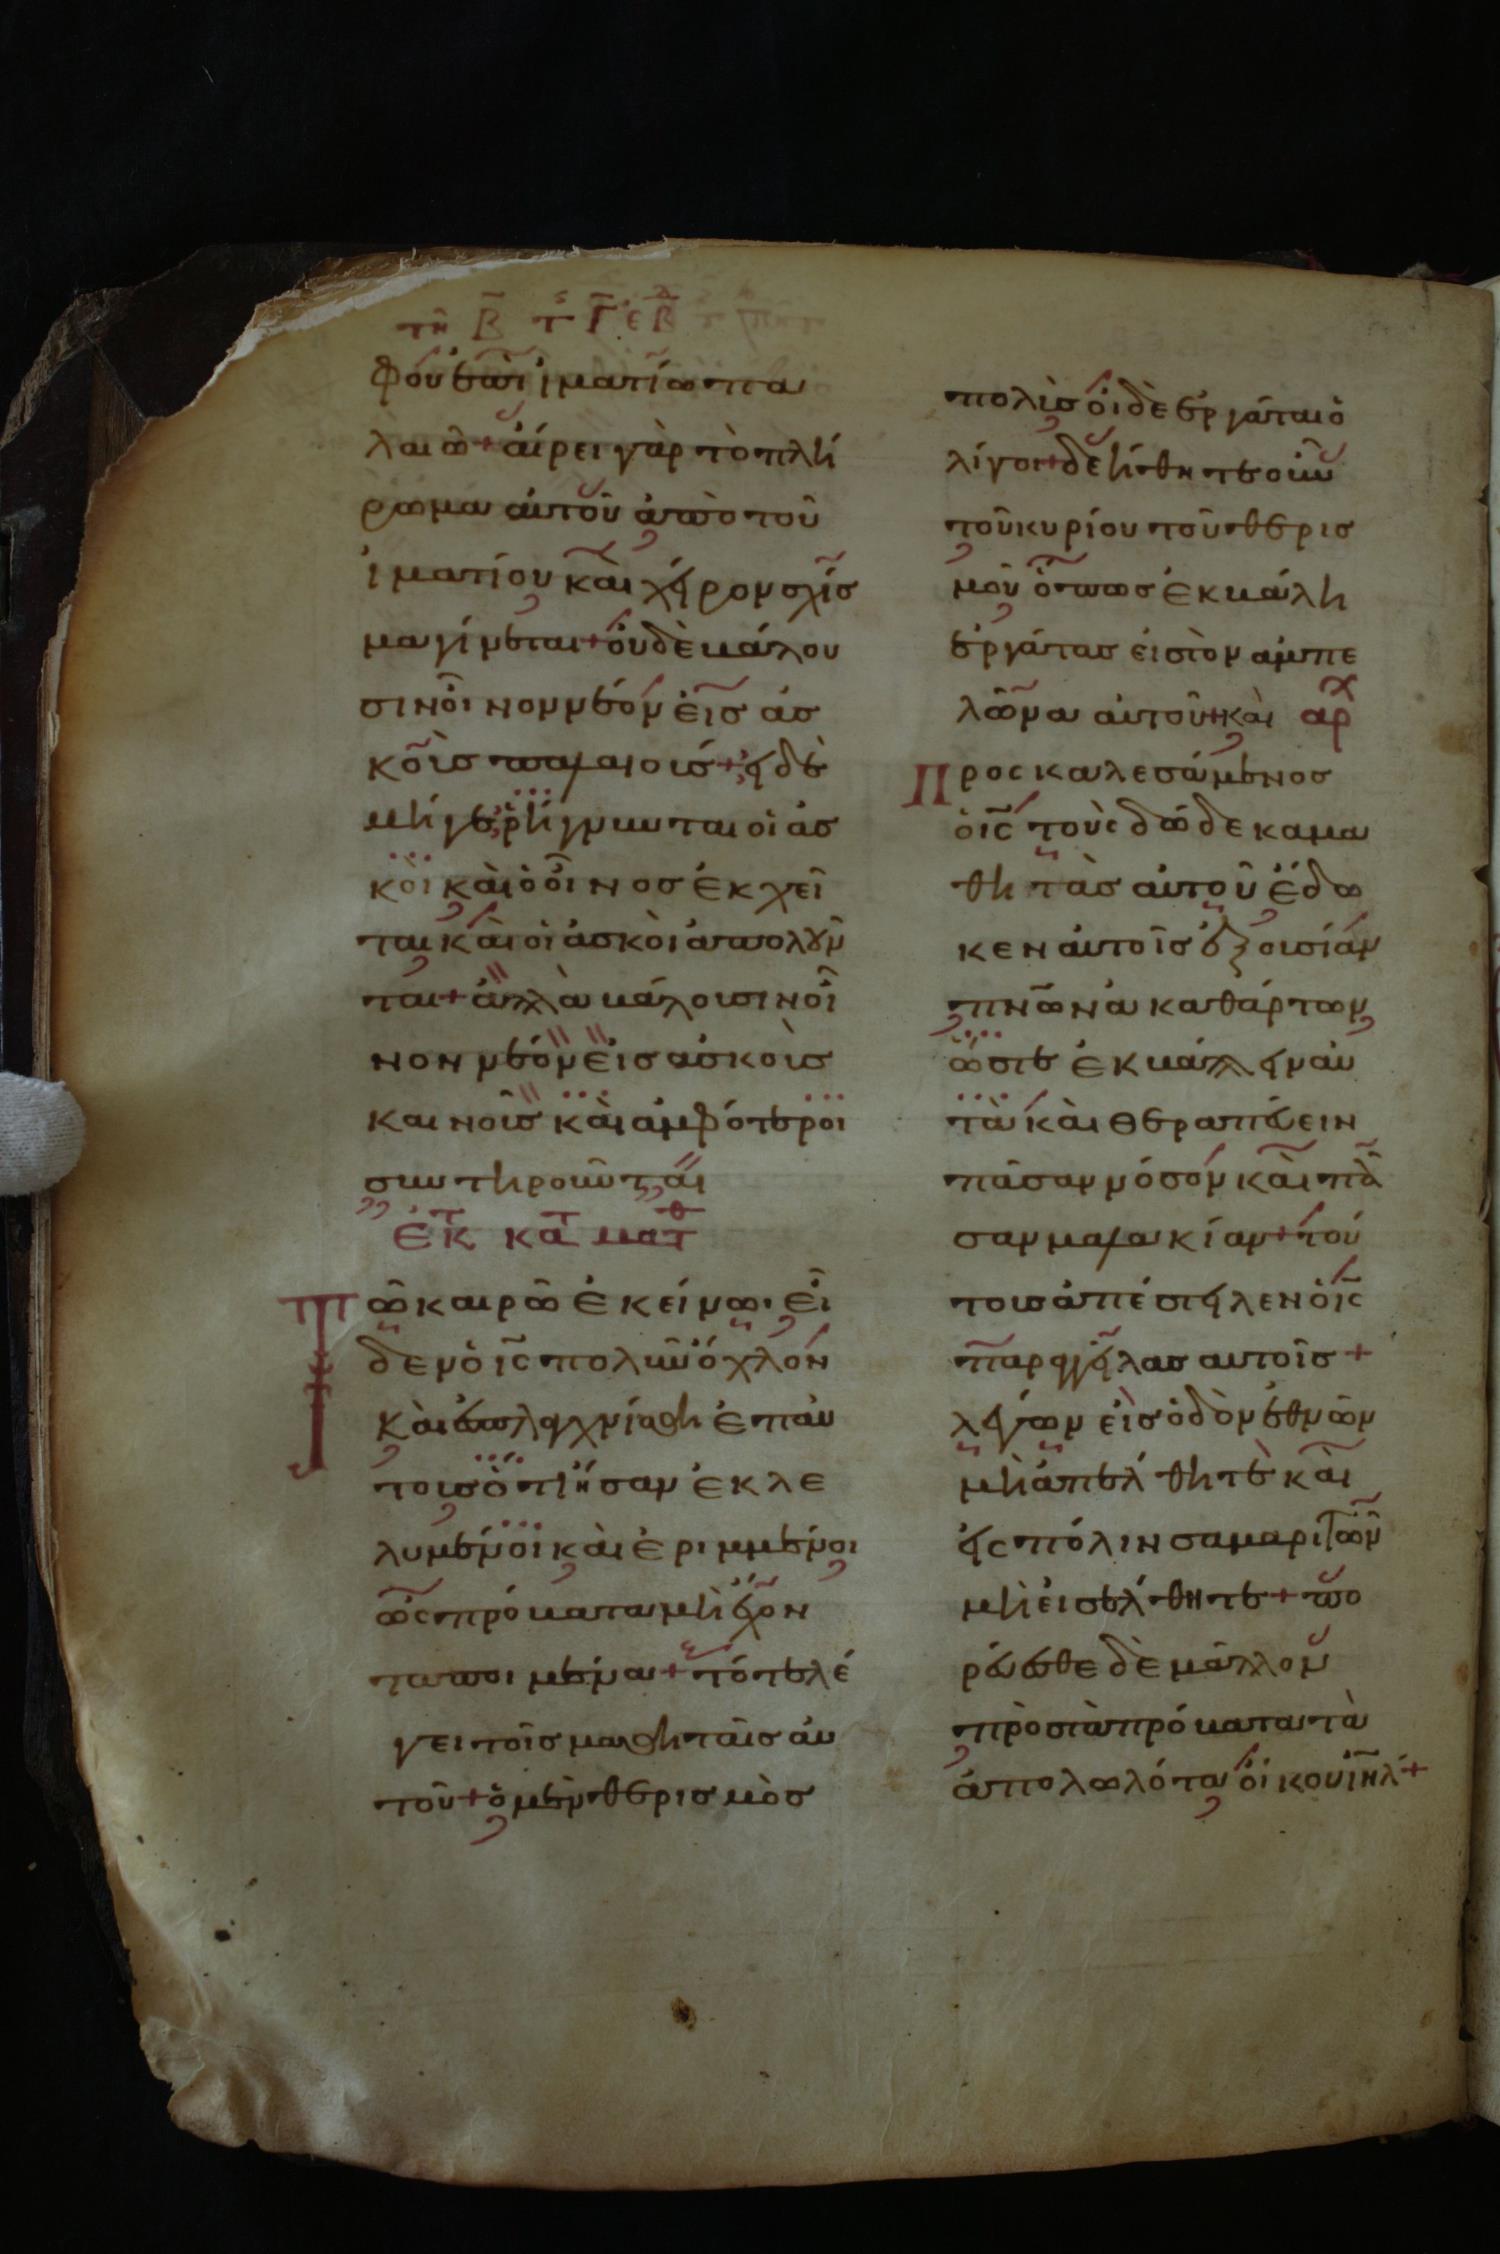 τῆ Β τ Γ ε Β
φου ἐπὶ ἱματίω πα
λαιῶ + αἴρει γὰρ τὸ πλή
ρωμα αὐτοῦ ἀπὸ τοῦ
ἱματίου καὶ χεῖρον σχίσ
μα γίνεται + οὐδὲ βάλου
σιν οἶνον νέον εἰς ἀσ
κοὺς παλαιούς + εἰ δὲ
μήγε ῥήγνυνται οἱ ἀσ
κοὶ καὶ ὁ οἶνος ἐκχεῖ
ται καὶ οἱ ἀσκοὶ ἀπολοῦν
ται + ἀλλὰ βάλουσιν οἶ
νον νέον εἰς ἀσκοὺς
καινοὺς καὶ ἀμφότεροι
συντηροῦνται
ἐκ κατ ματθ
Τῶ καιρῶ ἐκείνω· εἶ
δεν ὁ ις πολὺν ὄχλον
καὶ ἐσπλαγχνίσθη ἐπ αὐ
τοὺς ὅτι ἦσαν ἐκλε
λυμένοι καὶ ἐριμμένοι
ὡς πρόβατα μὴ ἔχον
τα ποιμένα + τότε λέ
γει τοῖς μαθηταῖς αὐ
τοῦ + ὁ μὲν θερισμὸς
πολὺς οἱ δὲ ἐργάται ὀ
λίγοι + δεήθητε οὖν
τοῦ κυρίου τοῦ θερισ
μοῦ ὅπως ἐκβάλη
ἐργάτας εἰς τὸν ἀμπε
λῶνα αὐτοῦ + καὶ αρχ
Προσκαλεσάμενος
ὁ ις τοὺς δώδεκα μα
θητὰς αὐτοῦ ἔδω
κεν αὐτοῖς ἐξουσίαν
πνῶν ἀκαθάρτων
ὥστε ἐκβάλλειν αὐ
τὰ καὶ θεραπεύειν
πᾶσαν νόσον καὶ πᾶ
σαν μαλακίαν + τού
τους ἀπέστειλεν ὁ ις
παραγγείλας αὐτοῖς +
λέγων εἰς ὁδὸν ἐθνῶν
μὴ ἀπέλθητε καὶ
εἰς πόλιν σαμαριτῶν
μὴ εἰσέλθητε + πο
ρεύεσθε δὲ μᾶλλον
πρὸς τὰ πρόβατα τὰ
ἀπολωλότα οἴκου ιηλ +